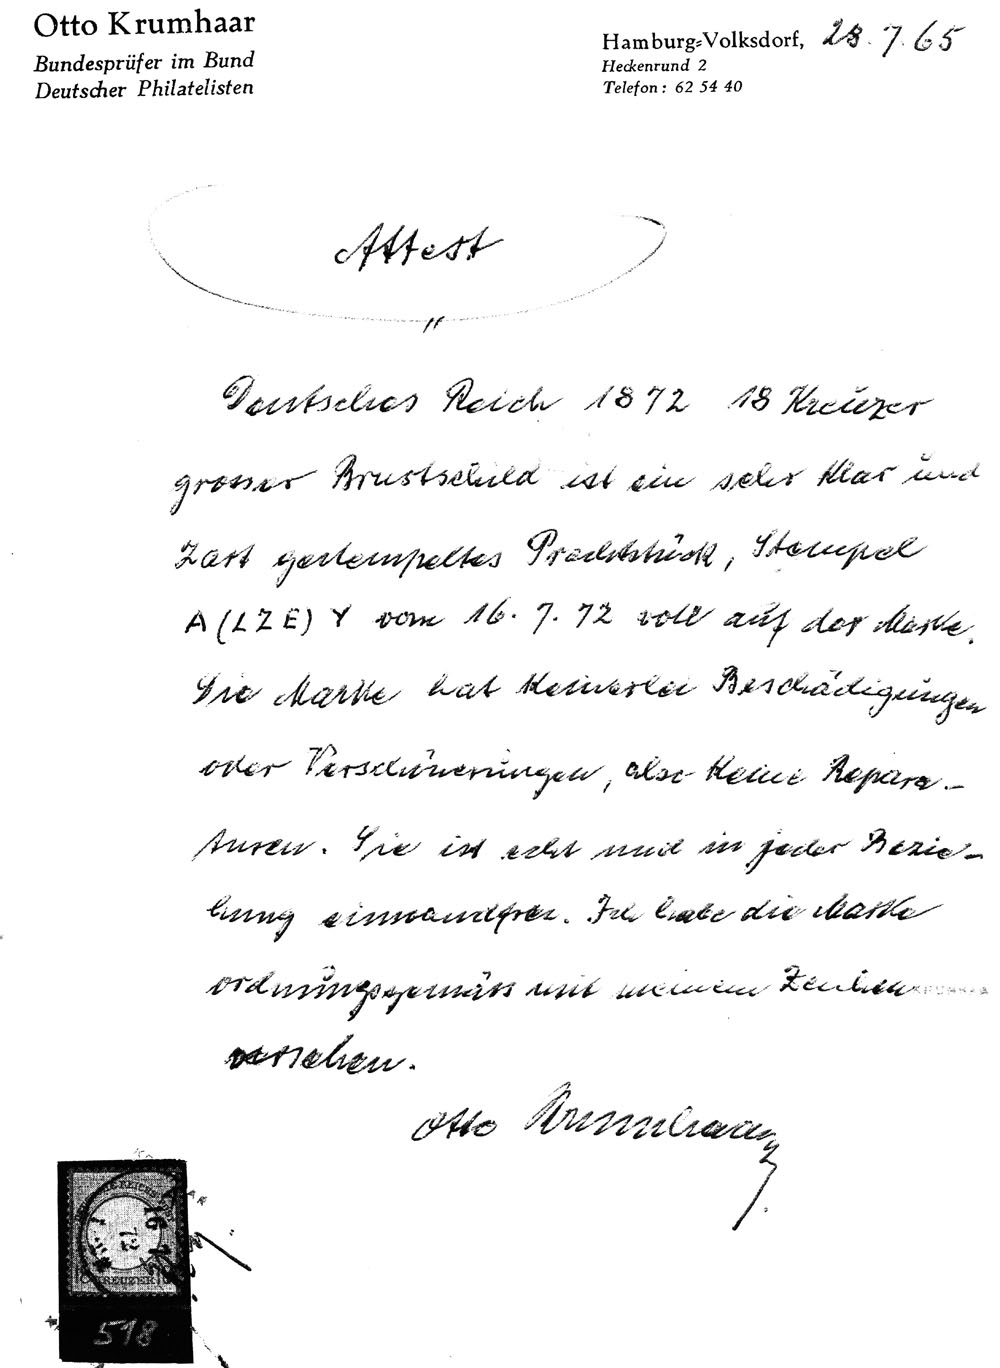 Otto Krumhaar
Bundesprüfer im Bund
Deutscher Philatelisten
Hamburg-Volksdorf, 28.7.65
Heckenrund 2
Telefon: 62 54 40
Attest
"
Deutsches Reich 1872 18 Kreuzer
grosser Brustschild ist ein sehr klar und
zart gestempeltes Prachtstück, Stempel
A(LZE)Y vom 16.7.72 voll auf der Marke.
Die Marke hat keinerlei Beschädigungen
oder Verschönerungen, also keine Repara-
turen. Sie ist echt und in jeder Bezie-
hung einwandfrei. Ich habe die Marke
ordnungsgemäss mit meinem Zeichen
versehen.
Otto Krumhaar
16 7
72
KREUZER
518